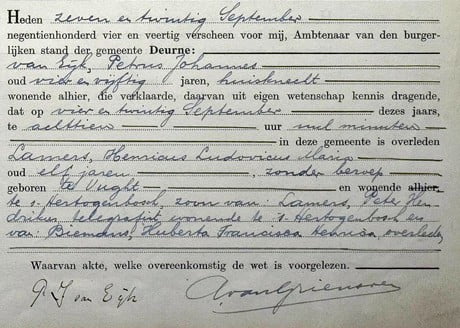 Heden zeven en twintig September
negentienhonderd vier en veertig verscheen voor mij, Ambtenaar van den burger-
lijken stand der gemeente Deurne:
van Eijk, Petrus Johannes
oud vier en vijftig jaren, huisknecht
wonende alhier, die verklaarde, daarvan uit eigen wetenschap kennis dragende,
dat op vier en twintig September dezes jaars,
te achttien uur nul minuten
in deze gemeente is overleden
Lamers, Henricus Ludovicus Maria
oud elf jaren, zonder beroep
geboren te Vught en wonende alhier.
te 's Hertogenbosch, zoon van: Lamers, Peter Hen-
drikus, telegrafist, wonende te 's Hertogenbosch en
van: Biemans, Huberta Francisca Henrica overleden
Waarvan akte, welke overeenkomstig de wet is voorgelezen.
P. J van Eijk